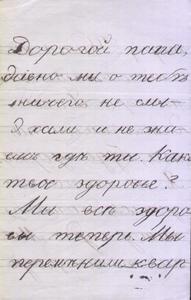 Дорогой папа,
давно мы о тебѣ
ничего не слы-
хали и не зна-
емъ гдѣ ты. Какъ
твое здоровье?
Мы всѣ здоро
вы теперь. Мы
перемѣнили квар